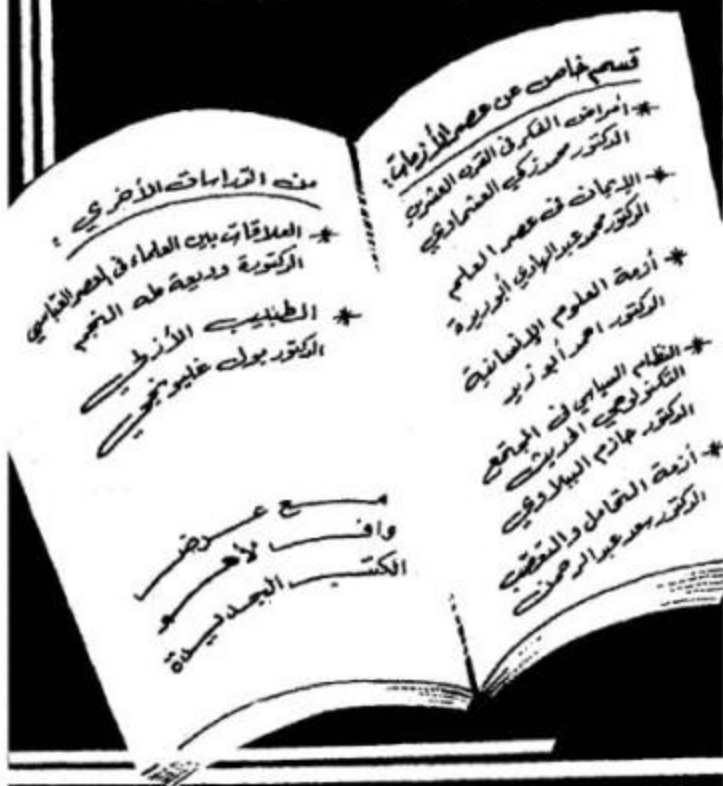 قسم خاص عن عصر الأزمات:
* أمراض الفكر في القرن العشرين
الدكتور محمد زكي العشماوي
* الإيمان في عصر العلم
الدكتور محمد عبدالهادي أبو ريدة
* أزمة العلوم الإنسانية
الدكتور احمد أبو زيد
* النظام السياسي في المجتمع
التكنولوجي الحديث
الدكتور حازم الببلاوي
* أزمة التحامل والتعصب
الدكتور سعد عبد الرحمن
من الدراسات الأخرى:
* العلاقات بين العلماء في العصر العباسي
الدكتورة وديعة طه النجم
* الطبيب الأزلي
الدكتور بول غليونجي
مع عرض
واف لأهم
الكتب الجديدة